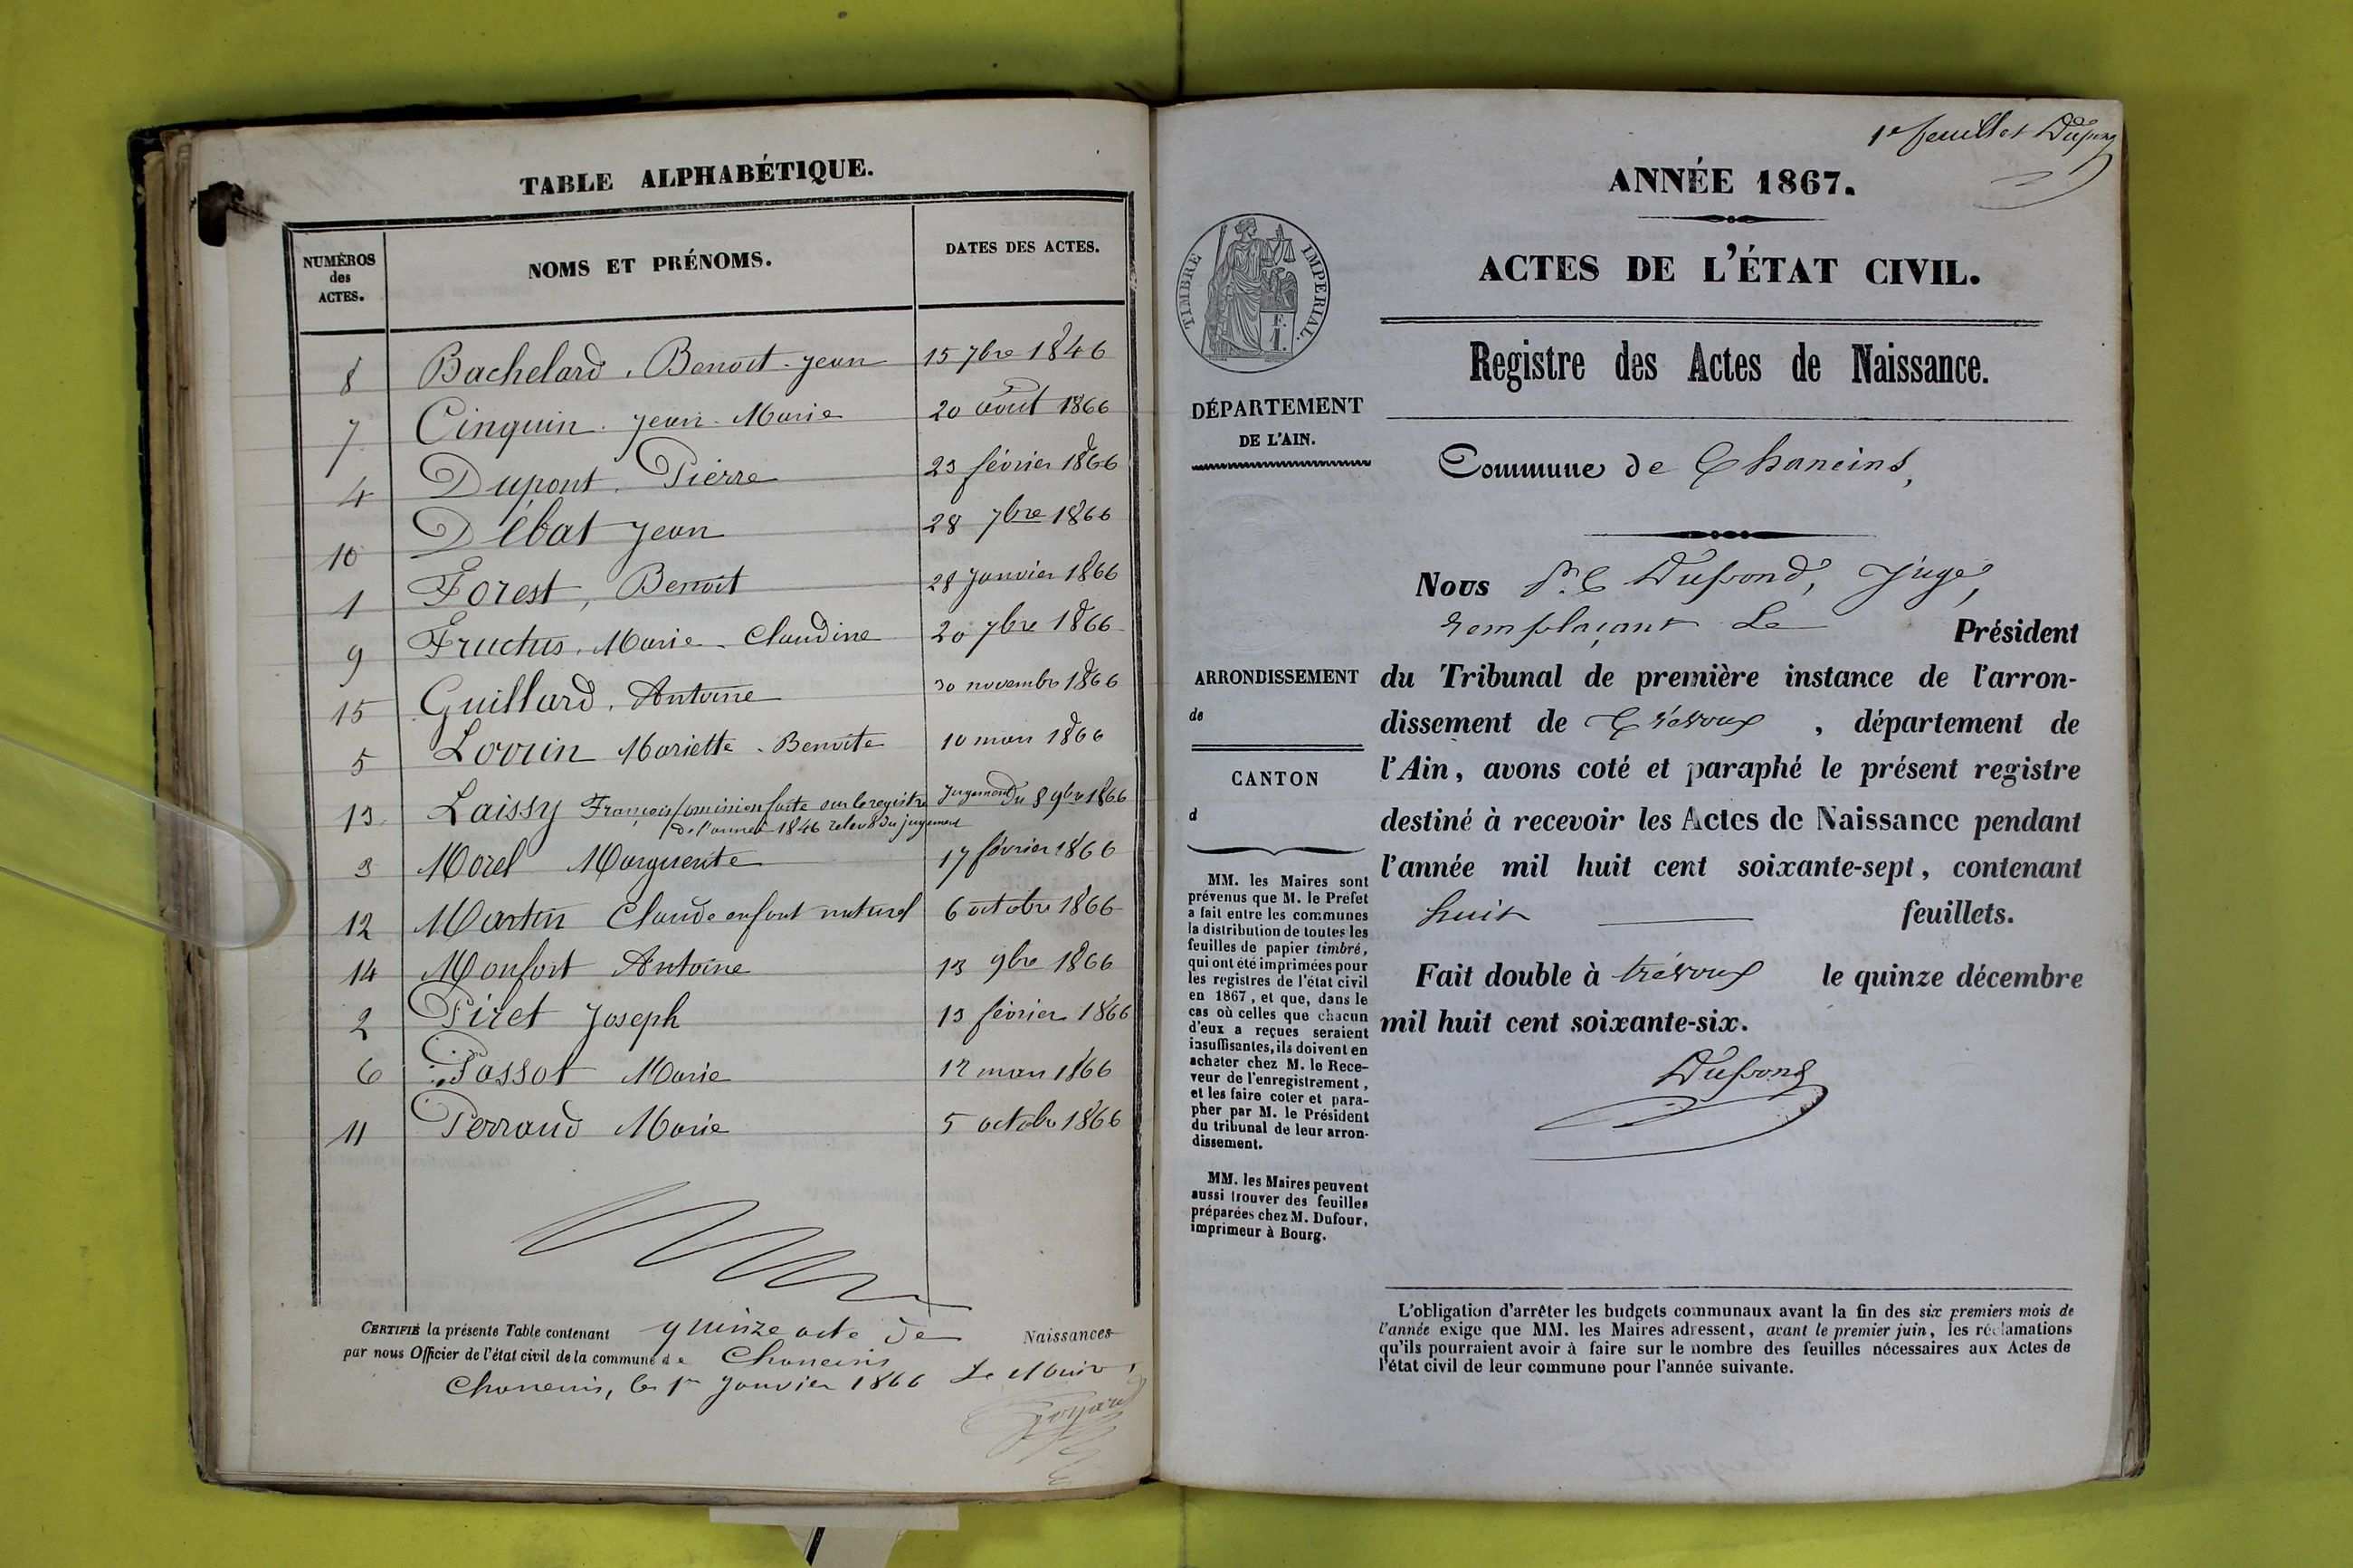 TABLE ALPHABÉTIQUE.
NUMÉROS des ACTES. NOMS ET PRÉNOMS. DATES DES ACTES.
8 Bachelard, Benoit-jean 15 7bre 1846
7 Cinquin jean-Marie 20 août 1866
4 Dupont, Pierre 23 février 1866
10 Débat jean 28 7bre 1866
1 Forest, Benoît 28 janvier 1866
9 Fructus, Marie-Claudine 20 7bre 1866
15 Guillard, Antoine 30 novembre 1866
5 Lorrin Mariette-Benoite 10 mars 1866
13 Laissy François (omission faite sur le registre Jugement du 8 9bre 1866
de l'année 1846 du jugement
3 Morel Marguerite 17 février 1866
12 Martin Claude enfant naturel 6 octobre 1866
14 Monfort Antoine 13 9bre 1866
2 Piret Joseph 13 février 1866
6 Passot Marie 12 mars 1866
11 Perraud Marie 5 octobre 1866
CERTIFIÉ la présente Table contenant quinze acte de Naissances
par nous Officier de l'état civil de la commune de Chaneins
Chaneins, le 1er Janvier 1866 Le Maire,
1e feuillet Dupond
ANNÉE 1867.
ACTES DE L'ÉTAT CIVIL.
TIMBRE IMPERIAL.
1.
Registre des Actes de Naissance.
DÉPARTEMENT
DE L'AIN.
Commune de Chaneins,
Nous Dupond, Juge,
remplaçant Le Président
ARRONDISSEMENT
de
CANTON
d
du Tribunal de première instance de l'arron-
dissement de Trévoux, département de
l'Ain, avons coté et paraphé le présent registre
destiné à recevoir les Actes de Naissance pendant
l'année mil huit cent soixante-sept, contenant
huit feuillets.
Fait double à trévoux le quinze décembre
mil huit cent soixante-six.
Dupond
MM. les Maires sont
prévenus que M. le Préfet
a fait entre les communes
la distribution de toutes les
feuilles de papier timbré,
qui ont été imprimées pour
les registres de l'état civil
en 1867, et que, dans le
cas où celles que chacun
d'eux a reçues seraient
insuffisantes, ils doivent en
acheter chez M. le Rece-
veur de l'enregistrement,
et les faire coter et para-
pher par M. le Président
du tribunal de leur arron-
dissement.
MM. les Maires peuvent
aussi trouver des feuilles
préparées chez M. Dufour,
imprimeur à Bourg.
L'obligation d'arrêter les budgets communaux avant la fin des six premiers mois de
l'année exige que MM. les Maires adressent, avant le premier juin, les réclamations
qu'ils pourraient avoir à faire sur le nombre des feuilles nécessaires aux Actes de
l'état civil de leur commune pour l'année suivante.